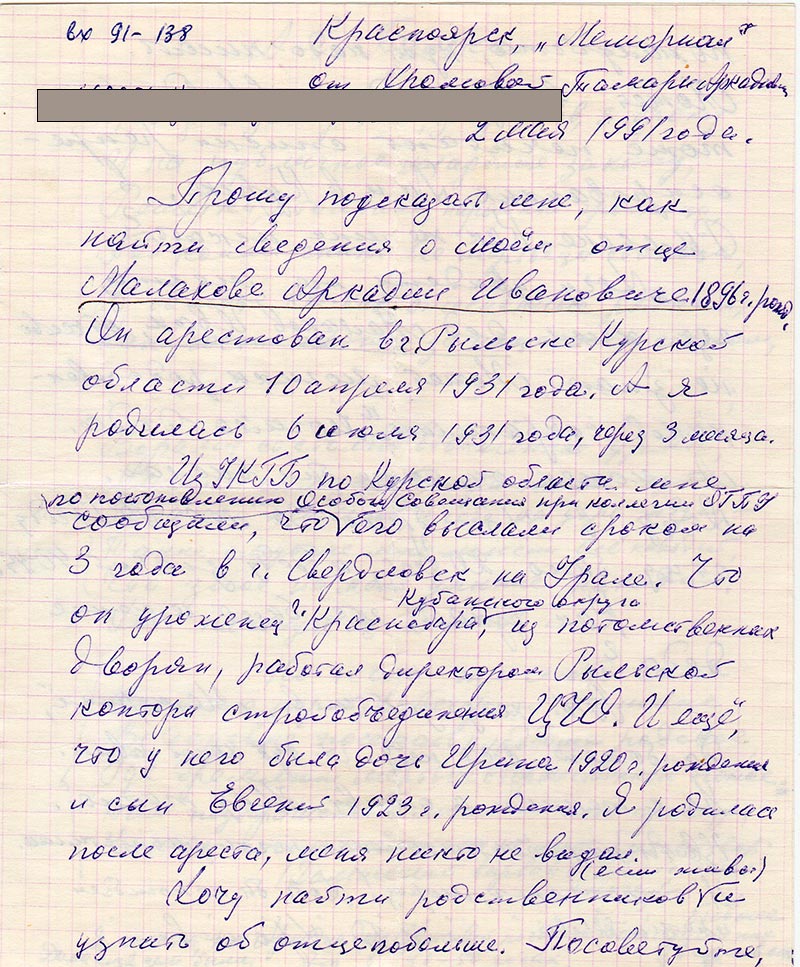 вх 91-138
Красноярск, „Мемориал"
от Хромовой Тамары Аркадьевны
2 мая 1991 года.
Прошу подсказать мне, как
найти сведения о моём отце
Малахове Аркадии Ивановиче 1896 г. рожд.
Он арестован в г. Рыльске Курской
области 10 апреля 1931 года. А я
родилась 6 июля 1931 года, через 3 месяца.
Из УКГБ по Курской области мне
по постановлению Особого Совещания при коллегии ОГПУ
сообщили, что его выслали сроком на
3 года в г. Свердловск на Урале. Что
Кубанского округа
он уроженец г. Краснодара, из потомственных
дворян, работал директором Рыльской
конторы стройобъединения ЦЧО. И ещё,
что у него была дочь Ирина 1920 г. рождения
и сын Евгений 1923 г. рождения. Я родилась
после ареста, меня никто не видал.
(если живы)
Хочу найти родственников и
узнать об отце побольше. Посоветуйте,